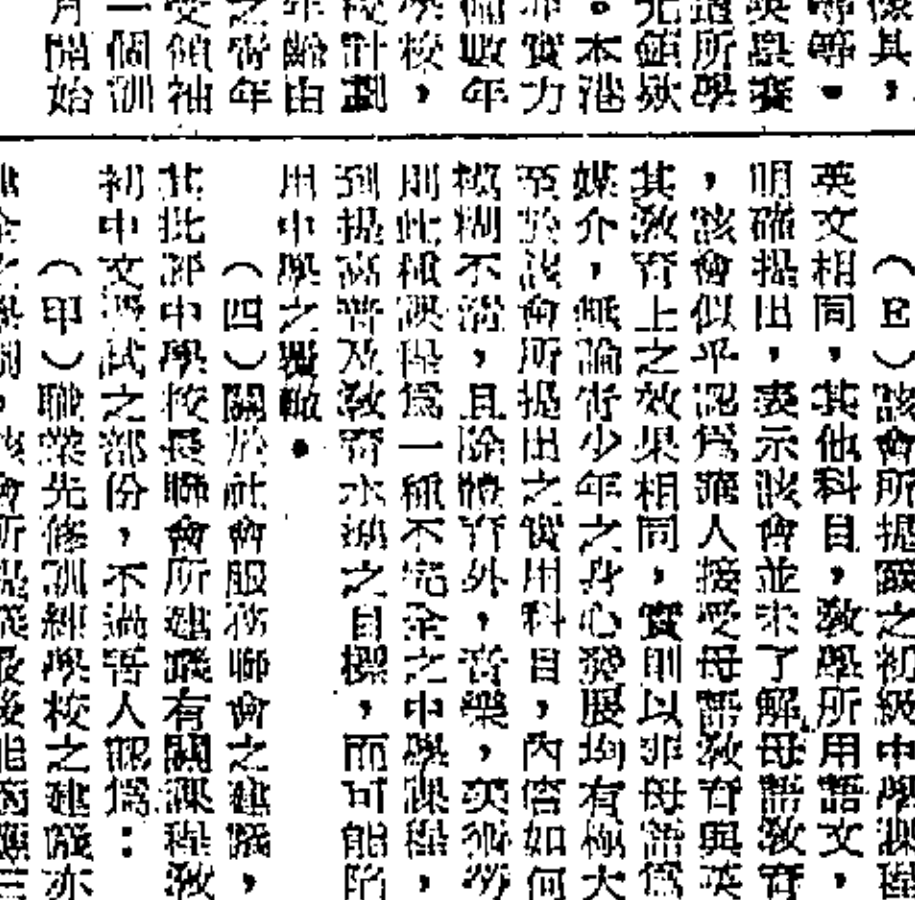 傢具，
等等。
英皇書
過所學
光顧缺
。本港
非實力
備收年
學校，
校計劃
年齡由
之青年
受領袖
一個訓
月開始
（Ｅ）該會所提議之初級中學課程
英文相同，其他科目，教學所用語文，
明確提出，表示該會並未了解母語教育
，該會似乎認為華人接受母語教育與英
其教育上之效果相同，實則以非母語為
媒介，無論青少年之身心發展均有極大
至於該會所提出之實用科目，內容如何
模糊不清，且除體育外，音樂，美術勞
則此種課程為一種不完全之中學課程，
到提高普及教育水準之目標，而可能陷
用中學之覆轍。
（四）關於社會服務聯會之建議，
其批評中學校長聯會所建議有關課程教
初中文憑試之部份，不過吾人認為：
（甲）職業先修訓練學校之建議亦